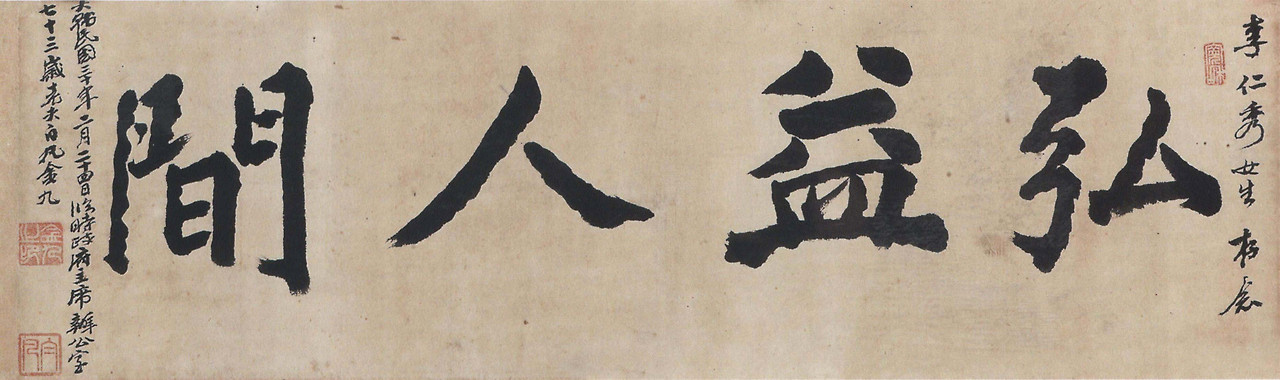 李仁秀女生存念
弘益人間
大韓民國三十年二月二十四日臨時政府主席辦公室
七十三歲老夫白凡金九
金九之印